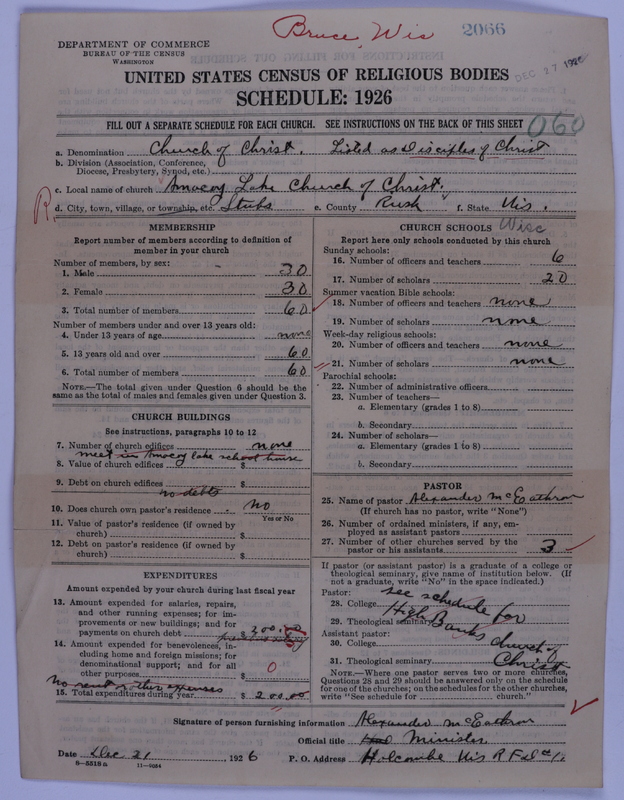 Bruce, Wis
2066
DEPARTMENT OF COMMERCE
BUREAU OF THE CENSUS
WASHINGTON
DEC 27 1926
UNITED STATES CENSUS OF RELIGIOUS BODIES
SCHEDULE: 1926
FILL OUT A SEPARATE SCHEDULE FOR EACH CHURCH. SEE INSTRUCTIONS ON THE BACK OF THIS SHEET
060
a. Denomination Church of Christ. Listed as Disciples of Christ
b. Division (Association, Conference, Diocese, Presbytery, Synod, etc.)
c. Local name of church Amacoy Lake Church of Christ.
R.
d. City, town, village, or township, etc. Stubs e. County Rusk f. State Wis.
Wisc
MEMBERSHIP
Report number of members according to definition of
member in your church
Number of members, by sex:
1. Male 30
2. Female 30
3. Total number of members 60
Number of members under and over 13 years old:
4. Under 13 years of age none
5. 13 years old and over 60
6. Total number of members 60
NOTE.—The total given under Question 6 should be
same as the total of males and females given under Question 3.
CHURCH BUILDINGS
See instructions, paragraphs 10 to 12
7. Number of church edifices none
meet in Amacoy lake school house
8. Value of church edifices $
9. Debt on church edifices $
no debts
10. Does church own pastor's residence no
Yes or No
11. Value of pastor's residence (if owned by
church) $
12. Debt on pastor's residence (if owned by
church) $
EXPENDITURES
Amount expended by your church during last fiscal year
13. Amount expended for salaries, repairs,
and other running expenses; for im-
provements or new buildings; and for
payments on church debt $ 200.00
14. Amount expended for benevolences, in-
cluding home and foreign missions; for
denominational support; and for all
other purposes $ 0
no rent or other expenses
15. Total expenditures during year $ 200.00
CHURCH SCHOOLS
Report here only schools conducted by this church
Sunday schools:
16. Number of officers and teachers 6
17. Number of scholars 20
Summer vacation Bible schools:
18. Number of officers and teachers none
19. Number of scholars none
Week-day religious schools:
20. Number of officers and teachers none
21. Number of scholars none
Parochial schools:
22. Number of administrative officers
23. Number of teachers—
a. Elementary (grades 1 to 8)
b. Secondary
24. Number of scholars—
a. Elementary (grades 1 to 8)
b. Secondary
PASTOR
25. Name of pastor Alexander McEathron
(If church has no pastor, write "None")
26. Number of ordained ministers, if any, em-
ployed as assistant pastors
27. Number of other churches served by the
pastor or his assistants 3
If pastor (or assistant pastor) is a graduate of a college or
theological seminary, give name of institution below. (If
not a graduate, write "No" in the space indicated.)
Pastor:
see schedule for
28. College
High Banks church of
29. Theological seminary
Assistant pastor:
30. College
Christ
31. Theological seminary
NOTE.—Where one pastor serves two or more churches,
Questions 28 and 29 should be answered only on the schedule
for one of the churches; on the schedules for the other churches,
write "See schedule for church."
Signature of person furnishing information Alexander McEathron
Official title Minister
Date Dec 21, 1926
P. O. Address Holcombe Wis R F D #1.
8-5518a 11-9054